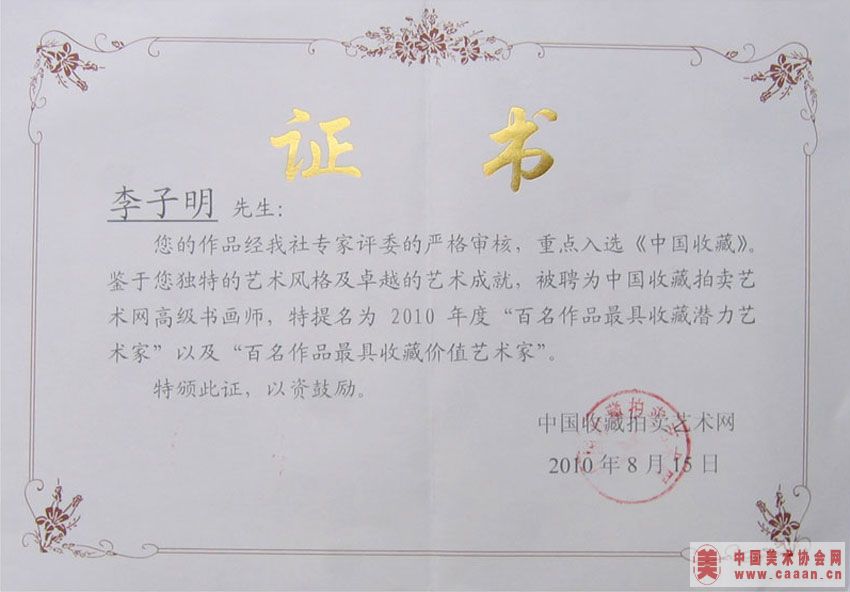 证 书
李子明 先生:
您的作品经我社专家评委的严格审核，重点入选《中国收藏》。
鉴于您独特的艺术风格及卓越的艺术成就，被聘为中国收藏拍卖艺
术网高级书画师，特提名为 2010 年度“百名作品最具收藏潜力艺
术家”以及“百名作品最具收藏价值艺术家”。
特颁此证，以资鼓励。
中国收藏拍卖艺术网
2010 年 8 月 15 日
美 中国美术协会网
www.caaan.cn